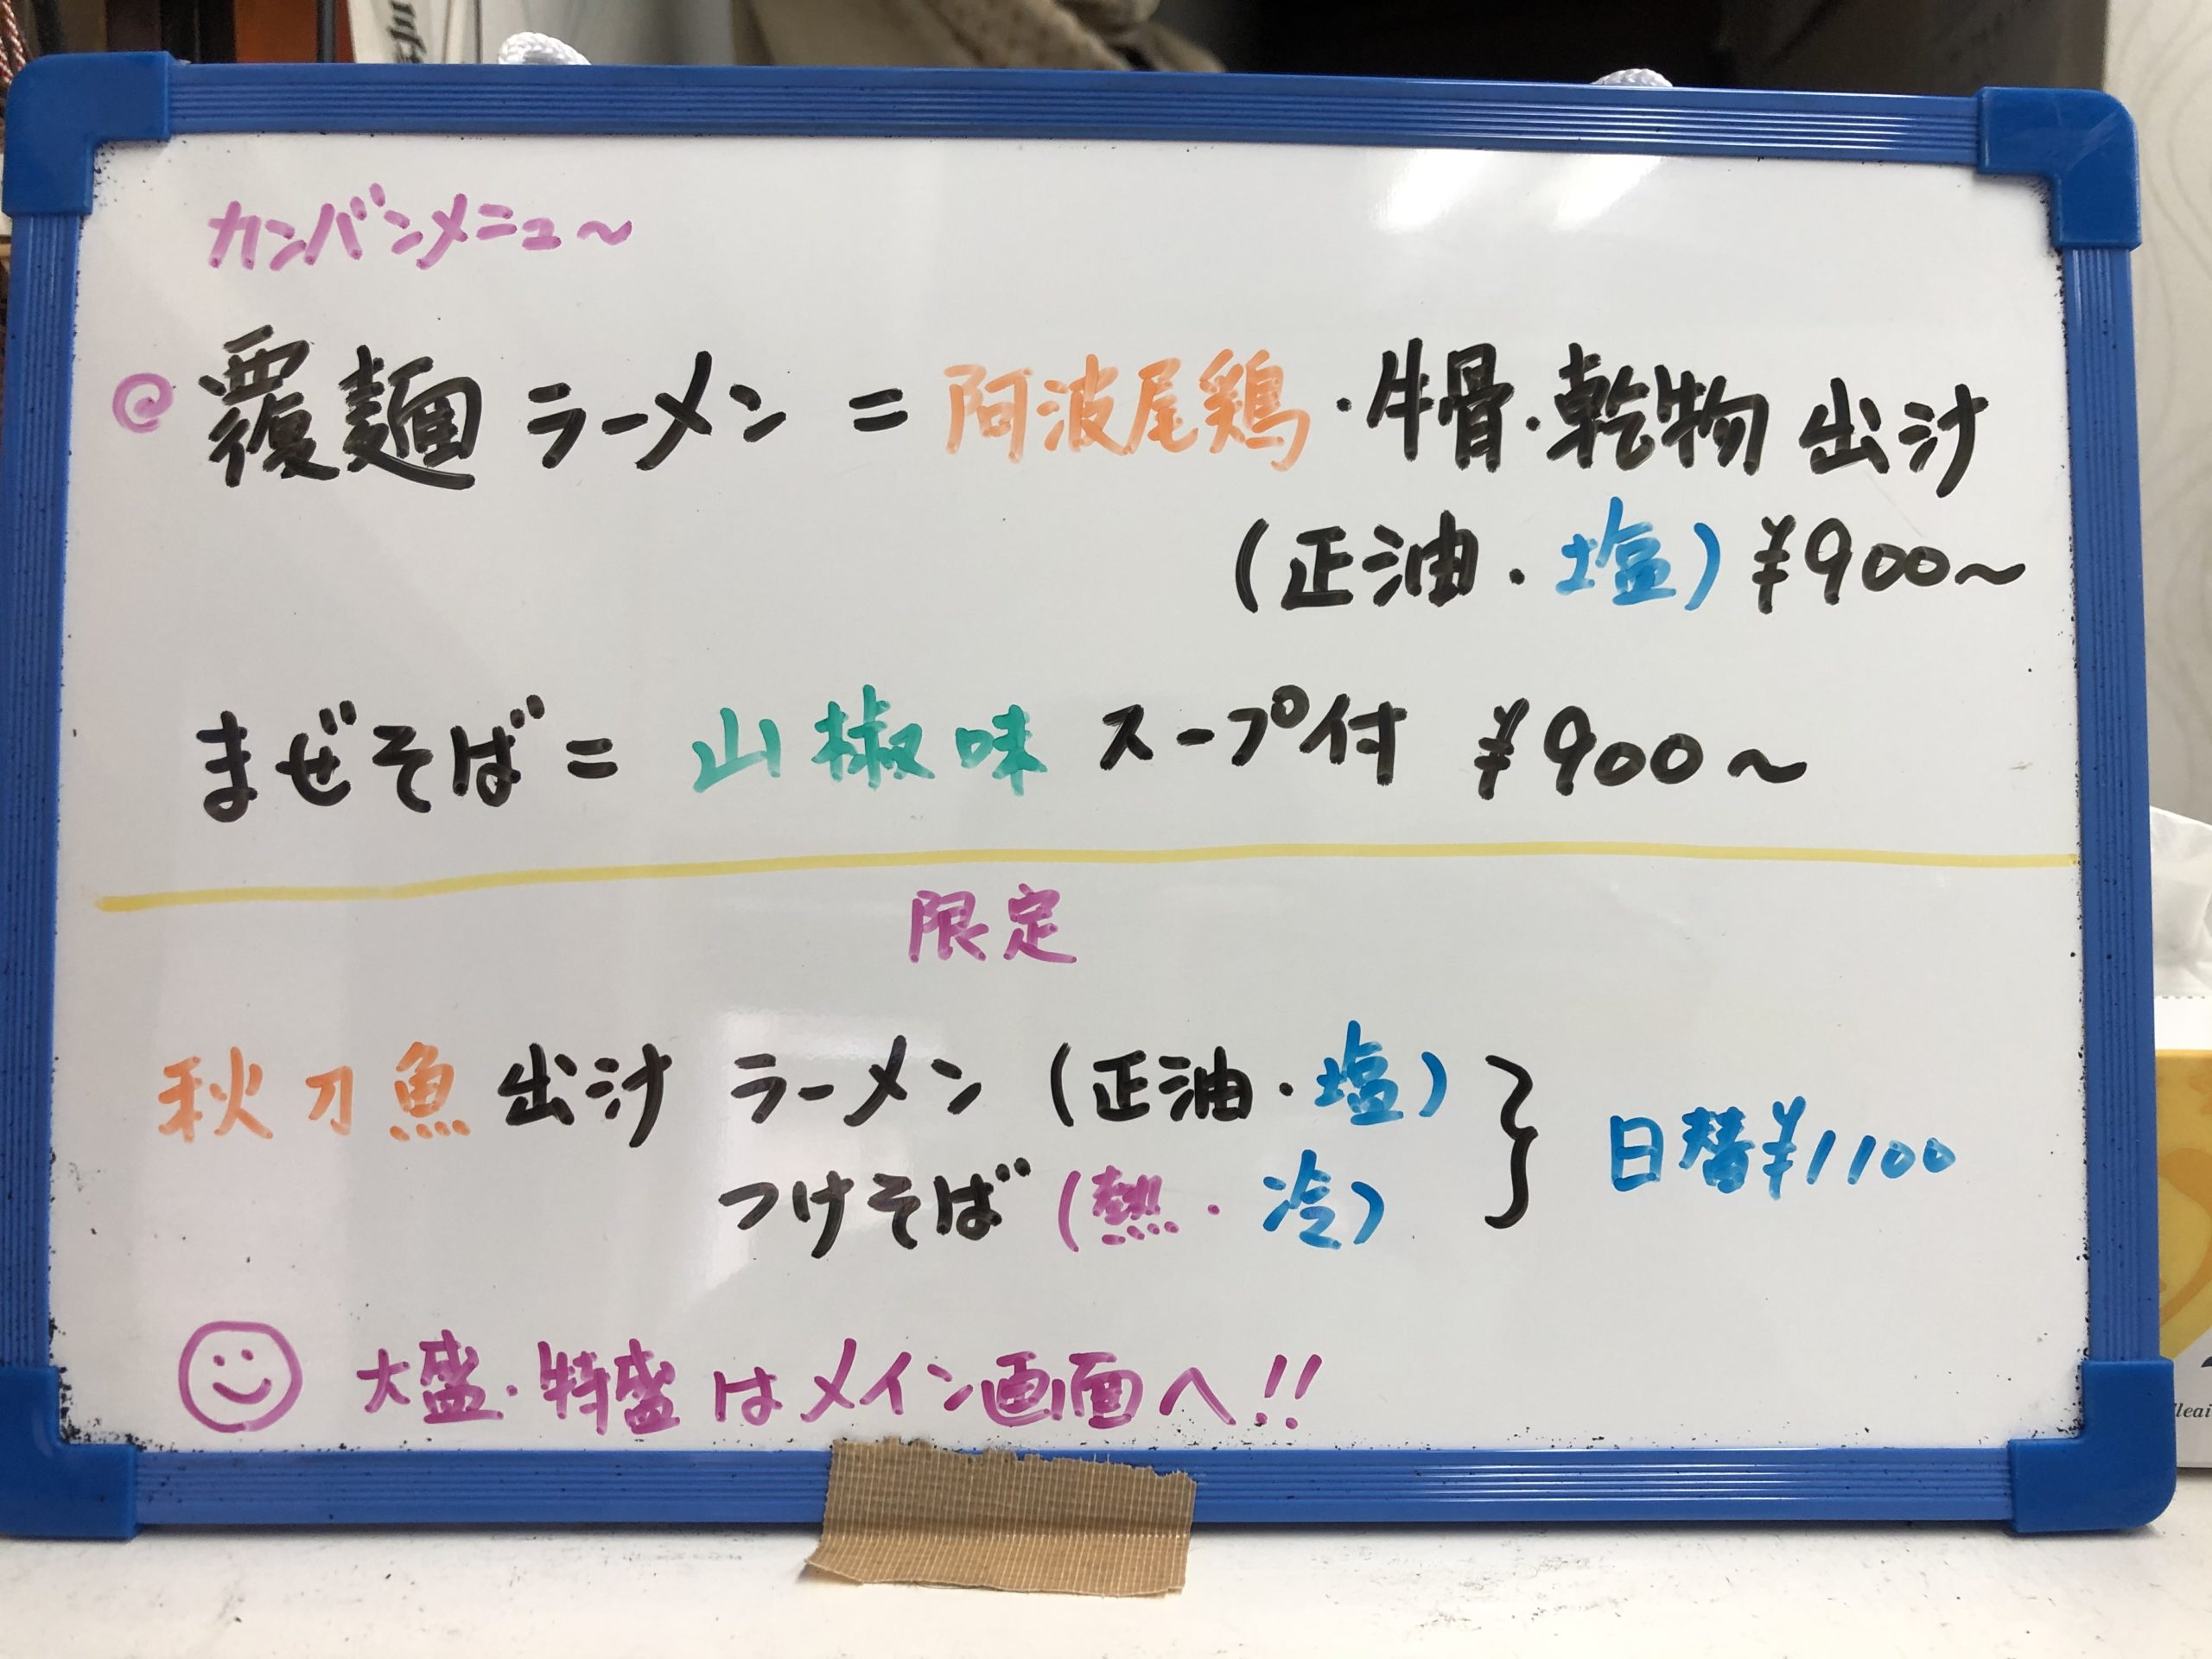 カンバンメニュ〜
@ 覆麺ラーメン = 阿波尾鶏・牛骨・乾物 出汁
(正油・塩) ¥900〜
まぜそば = 山椒味 スープ付 ¥900〜
限定
秋刀魚 出汁 ラーメン (正油・塩)
つけそば (熱・冷)
日替¥1100
大盛・特盛はメイン画面へ!!